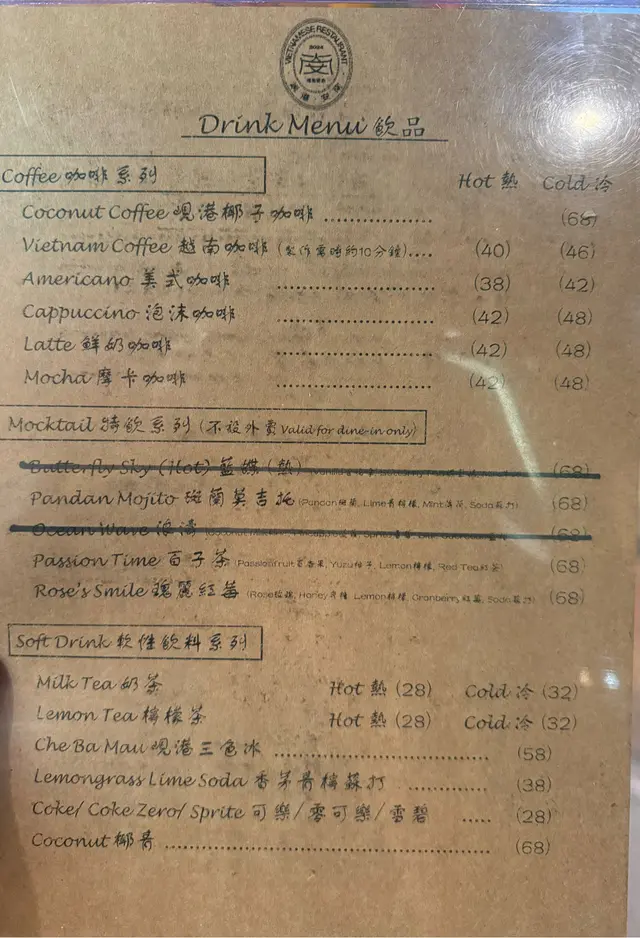 VIETNAMESE RESTAURANT
2024
Drink Menu 飲品
Coffee 咖啡系列
Hot 熱 Cold 冷
Coconut Coffee 峴港椰子咖啡 .................. (68)
Vietnam Coffee 越南咖啡 (製作需時約10分鐘).... (40) (46)
Americano 美式咖啡 .......................... (38) (42)
Cappuccino 泡沫咖啡 .......................... (42) (48)
Latte 鮮奶咖啡 .......................... (42) (48)
Mocha 摩卡咖啡 .......................... (42) (48)
Mocktail 特飲系列 (不設外賣 Valid for dine-in only)
Butterfly Sky (Hot) 藍蝶 (熱) (68)
Pandan Mojito 斑蘭莫吉托 (Pandan斑蘭, Lime青檸檬, Mint薄荷, Soda梳力) (68)
Ocean Wave 浪濤 (68)
Passion Time 百子茶 (Passionfruit百香果, Yuzu柚子, Lemon檸檬, Red Tea紅茶) (68)
Rose's Smile 瑰麗紅莓 (Rose玫瑰, Honey Lemon檸檬, Cranberry紅莓, Soda梳力) (68)
Soft Drink 軟性飲料系列
Milk Tea 奶茶 Hot 熱 (28) Cold 冷 (32)
Lemon Tea 檸檬茶 Hot 熱 (28) Cold 冷 (32)
Che Ba Mau 峴港三色冰 .................................. (58)
Lemongrass Lime Soda 香茅青檸蘇打 ............ (38)
Coke/ Coke Zero/ Sprite 可樂/零可樂/雪碧 ..... (28)
Coconut 椰青 .................................................... (68)